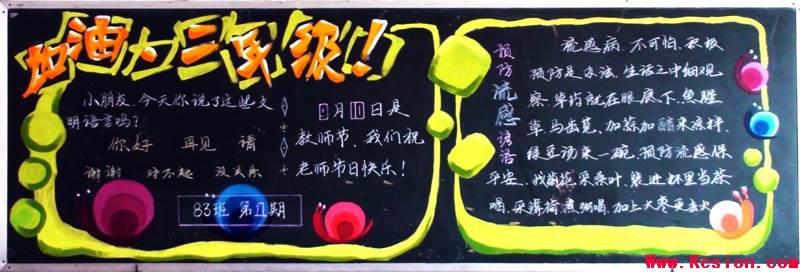 加油 三年级!!
小朋友,今天你说了这些文
明语言吗?
你好 再见 请
谢谢 对不起 没关系
9月10日是
教师节,我们祝
老师节日快乐!
83班 第1期
预防流感谚语
流感病,不可怕,积极
预防是办法,生活之中细观
察,草药就在眼底下,鱼腥
草马齿苋,加蒜加醋来凉拌,
绿豆汤来一碗,预防流感保
平安,我菊花采桑叶,装进杯里当茶
喝,采薄荷煮粥喝,加上大枣更去火
Www.Kesion.com